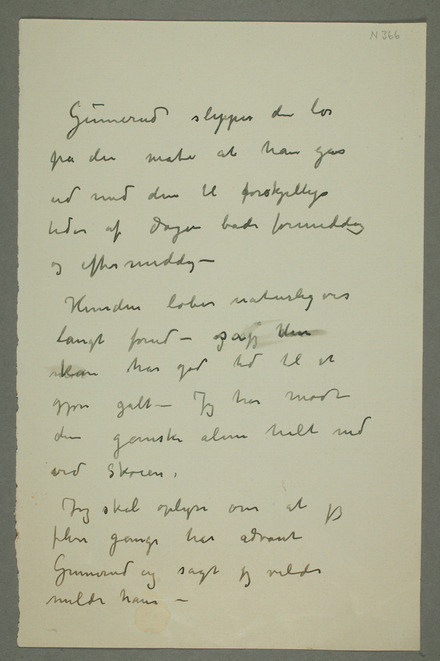 N 366
Gunnerud slipper den løs
på den måte at han går
ud med den til forskjellige
tider af Dagen både formiddag
og eftermiddag –
Hunden løber naturligvis
langt forud – og
kan har god tid til at
gjøre galt – Jeg har mødt
den ganske alene helt ned
ved Skøien.
Jeg skal oplyse om at jeg
flere gange har advart
Gunnerud og sagt jeg vilde
melde ham –